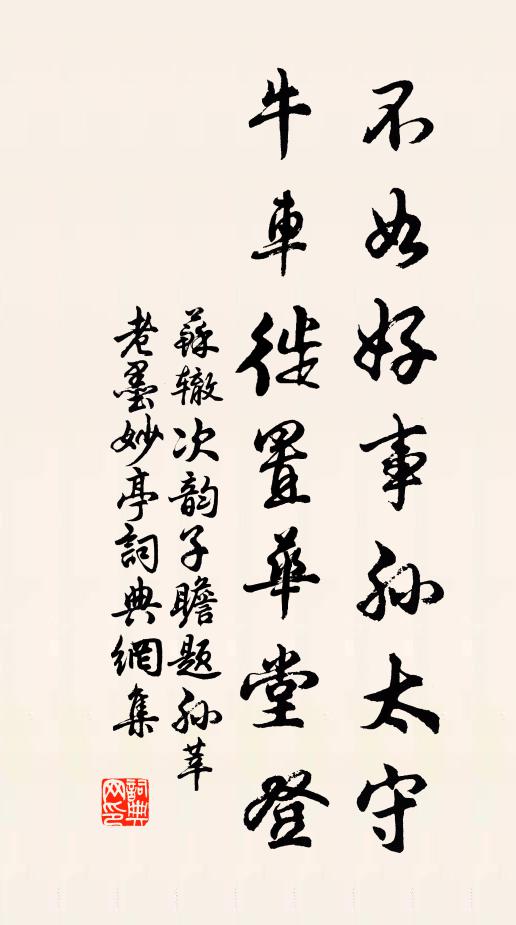 不如好事孙太守
牛車徙置華堂登
蘇辙次韵子瞻题孙莘
老墨妙亭詞典網集
詞典网印